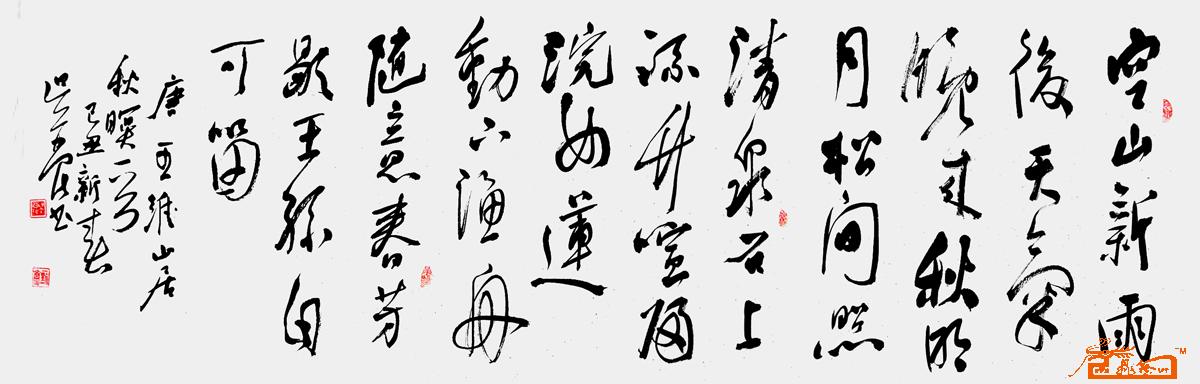 空山新雨
後天氣
晚来秋明
月松间照
清泉石上
流竹喧歸
浣女蓮
動下渔舟
随意春芳
歇王孫自
可留
唐王維山居
秋暝一首
己丑新春
书